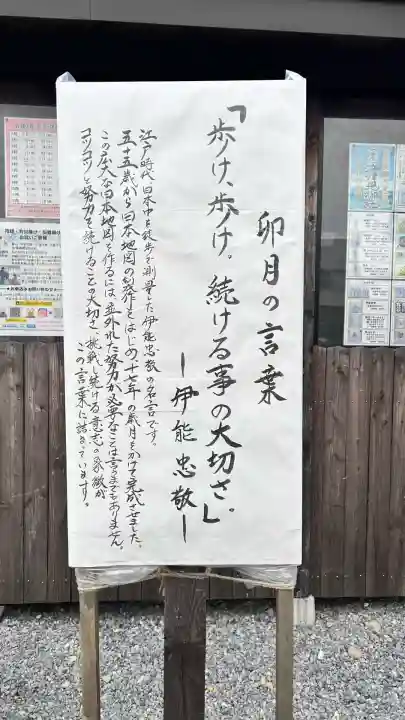 卯月の言葉
「歩け、歩け。続ける事の大切さ」。
ー伊能忠敬ー
江戸時代、日本中を徒歩で測量した伊能忠敬の名言です。
五十五歳から日本地図の製作をはじめ、十七年の歳月をかけて完成させました。
この広大な日本地図を作るには、並外れた努力が必要なことは言うまでもありません。
コツコツと努力を続けることの大切さ、挑戦し続ける意志の象徴が
この言葉に詰まっています。